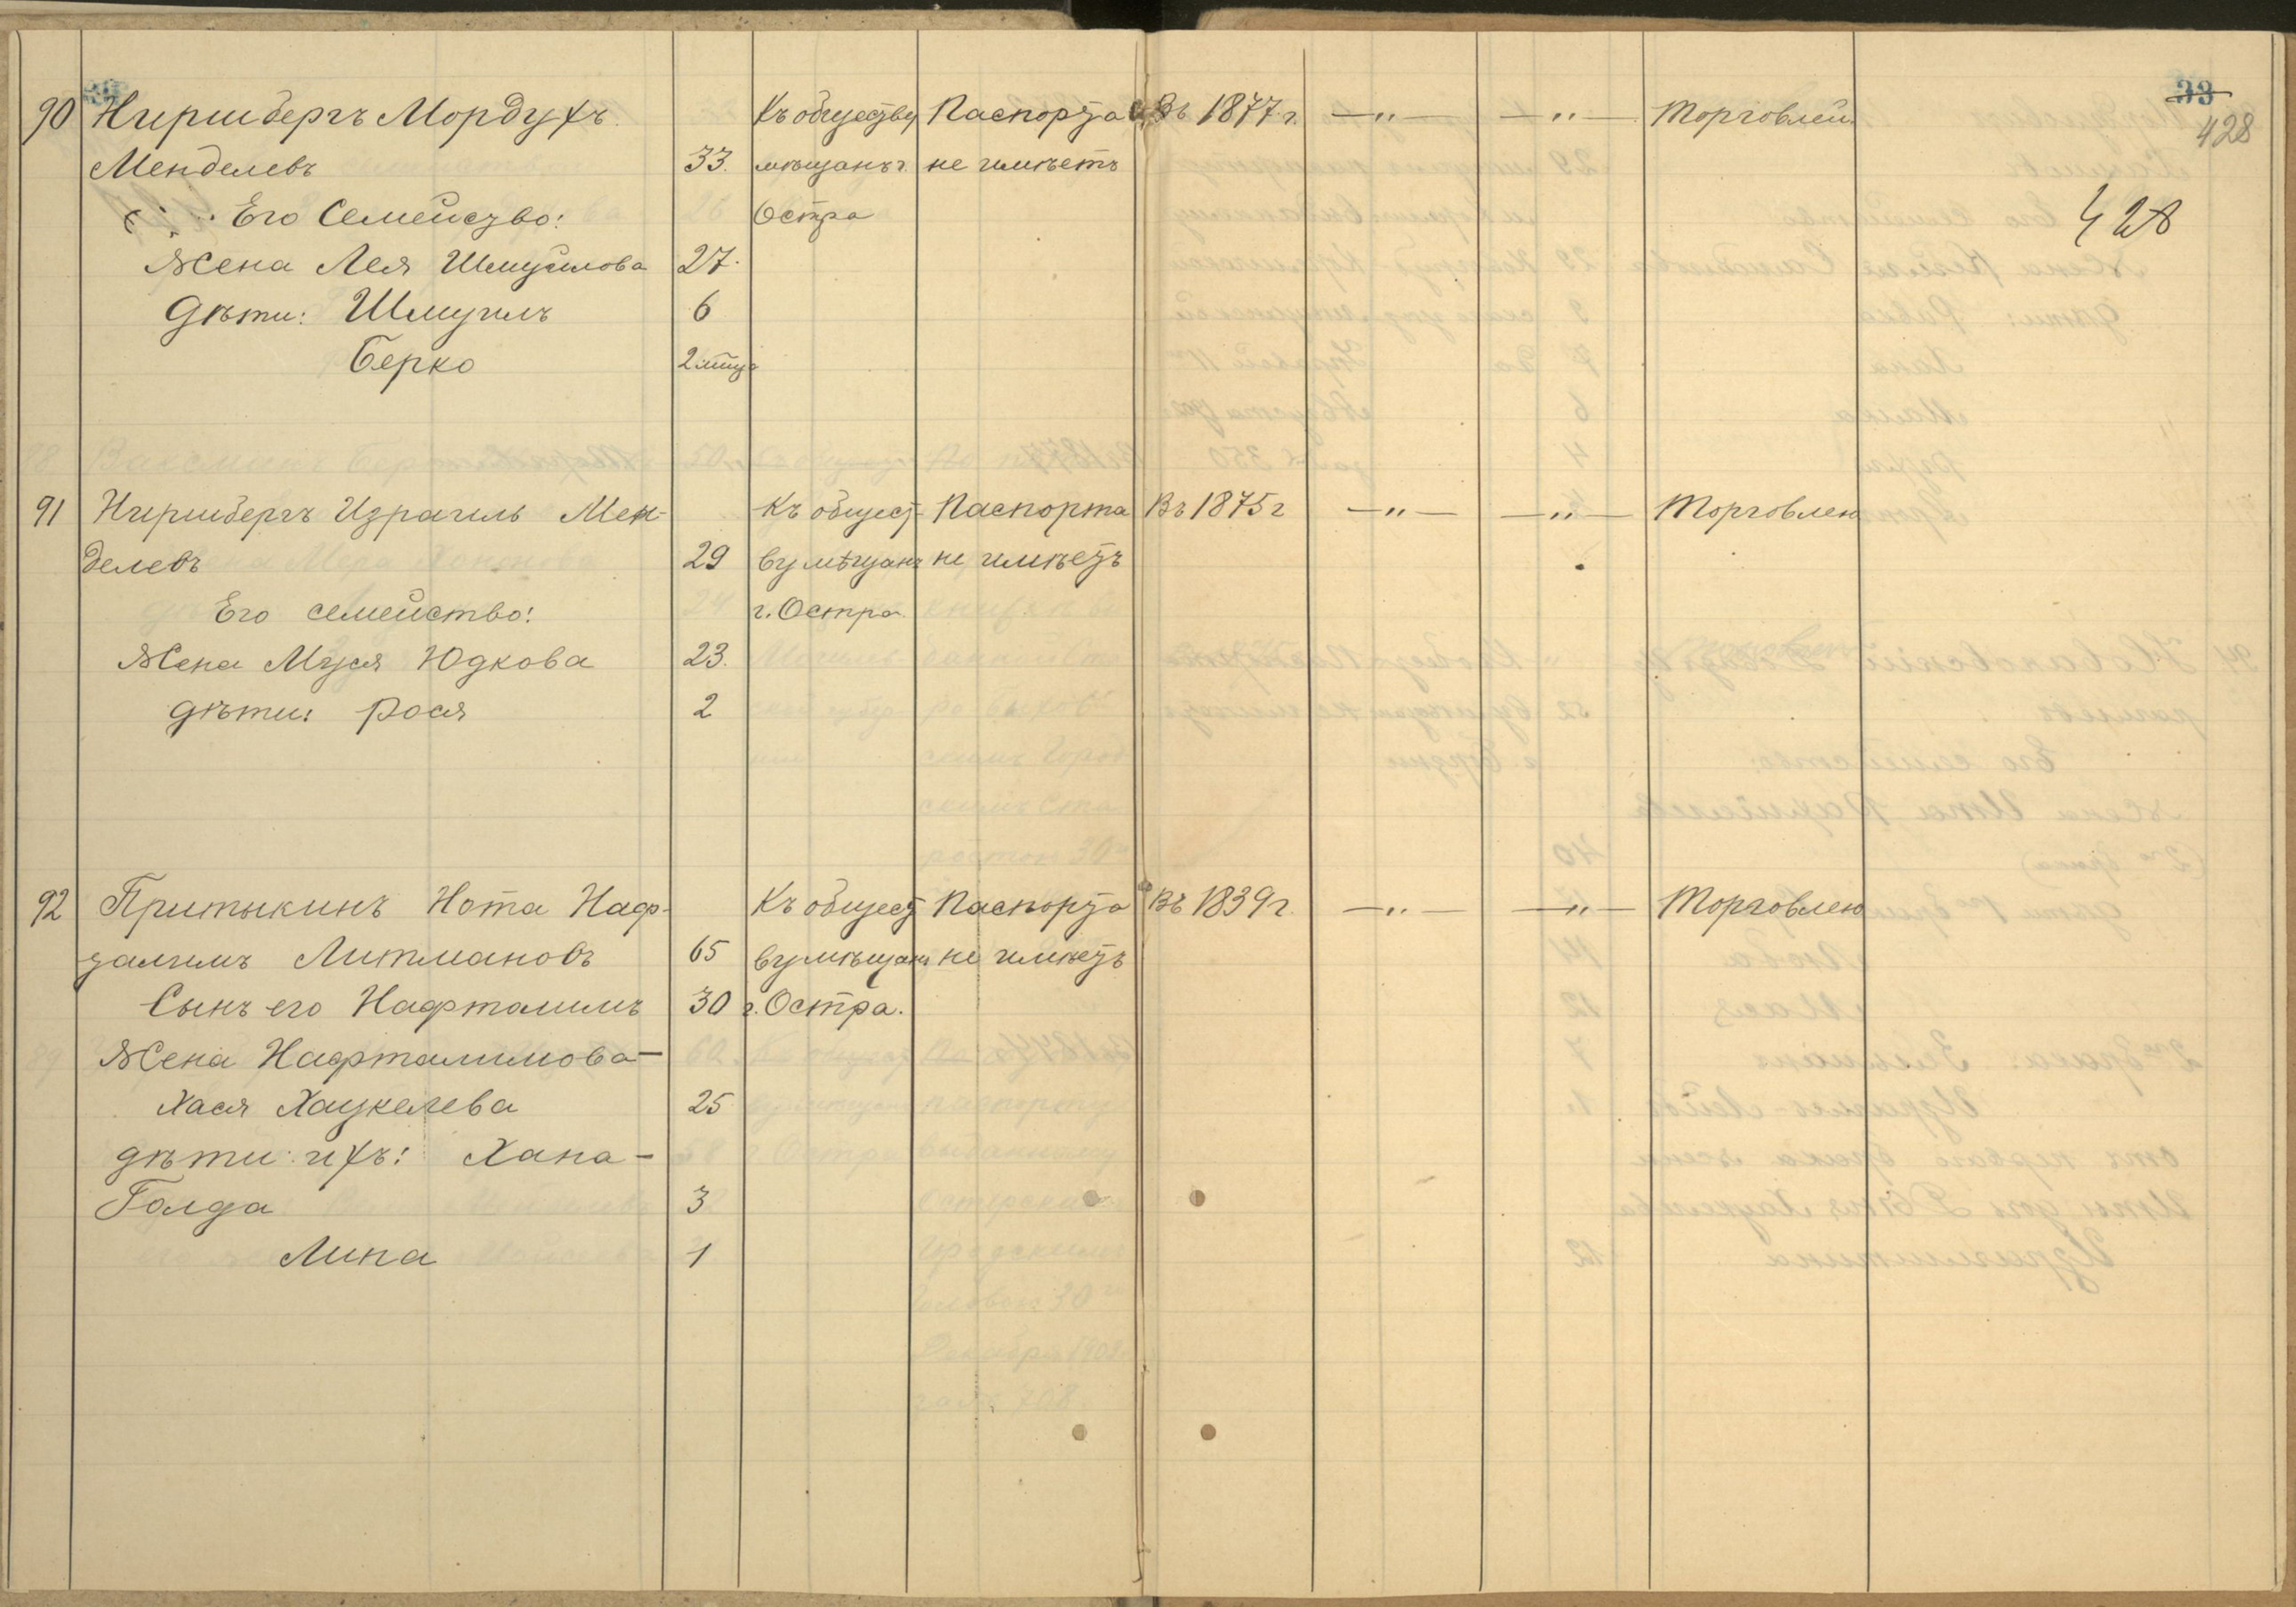 33
428
428
90 Ниришбергъ Мордухъ Къ обществу Паспорта Въ 1877 г. —"— —"— Торговлей
Менделевъ 33. мѣщанъ г. не имѣетъ
Его Семейство: Остра
Жена Лея Шмуйлова 27.
Дѣти: Шмуилъ 6
Берко 2 мѣсяца
91 Ниришбергъ Израиль Мен- Къ общест- Паспорта Въ 1875 г —"— —"— Торговлею
делевъ 29 ву мѣщанъ не имѣетъ
Его семейство: г. Остра
Жена Муся Юдкова 23.
Дѣти: Рося 2
92 Притыкинъ Нота Наф- Къ общест Паспорта Въ 1839 г. —"— —"— Торговлею
талимъ Литмановъ 65 ву мѣщанъ не имѣетъ
Сынъ его Нафталимъ 30 г. Остра.
Жена Нафталимова—
Хася Хацкелева 25
дѣти ихъ: Хана—
Голда 3
Лина 1